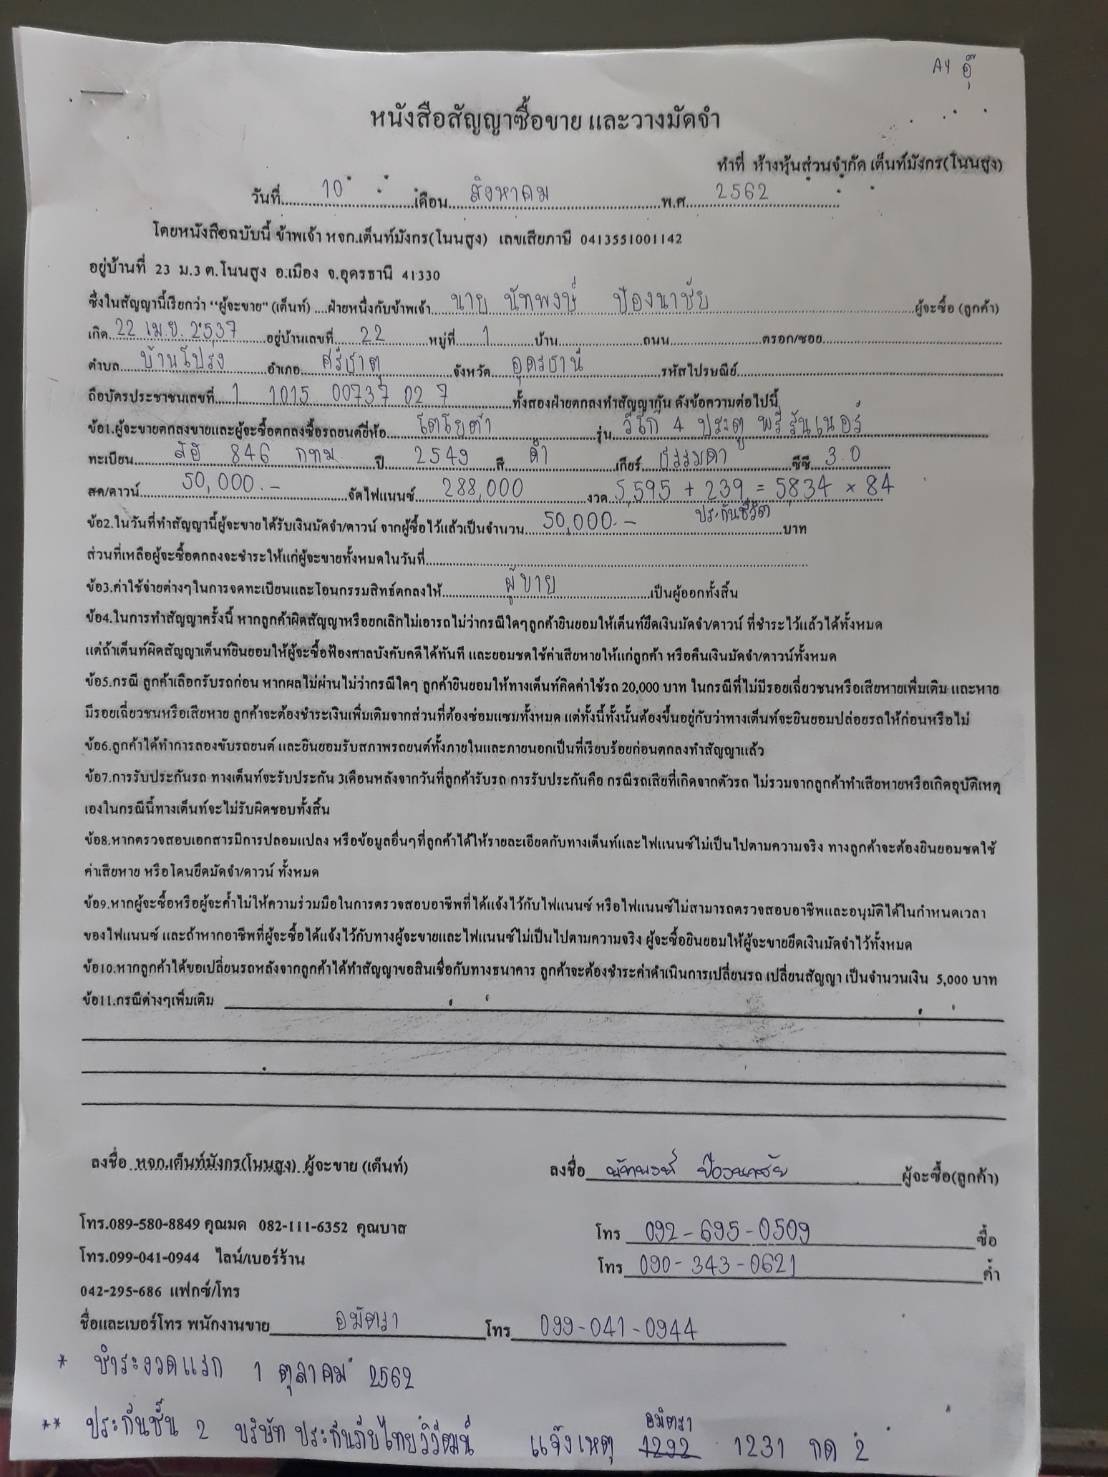 A4 อุ๊
หนังสือสัญญาซื้อขาย และวางมัดจำ
ทำที่ ห้างหุ้นส่วนจำกัด เต็นท์มังกร(โนนสูง)
วันที่ 10 เดือน สิงหาคม พ.ศ. 2562
โดยหนังสือฉบับนี้ ข้าพเจ้า หจก.เต็นท์มังกร(โนนสูง) เลขเสียภาษี 0413551001142
อยู่บ้านที่ 23 ม.3 ต.โนนสูง อ.เมือง จ.อุดรธานี 41330
ซึ่งในสัญญานี้เรียกว่า "ผู้จะขาย" (เต็นท์) ....ฝ่ายหนึ่งกับข้าพเจ้า นาย นัทพงษ์ ป้องนาชัย ผู้จะซื้อ (ลูกค้า)
เกิด 22 เม.ย. 2537 อยู่บ้านเลขที่ 22 หมู่ที่ 1 บ้าน ถนน ตรอก/ซอย
ตำบล บ้านโปร่ง อำเภอ ศรีธาตุ จังหวัด อุดรธานี รหัสไปรษณีย์
ถือบัตรประชาชนเลขที่ 1 1015 00737 02 7 ทั้งสองฝ่ายตกลงทำสัญญากัน ดังข้อความต่อไปนี้
ข้อ1.ผู้จะขายตกลงขายและผู้จะซื้อตกลงซื้อรถยนต์ยี่ห้อ โตโยต้า รุ่น วีโก้ 4 ประตู พรีรันเนอร์
ทะเบียน 846 กทม ปี 2549 สี ดำ เกียร์ ธรรมดา ซีซี 3.0
สด/ดาวน์ 50,000.- จัดไฟแนนซ์ 288,000 งวด 5,595 + 239 = 5834 × 84
ประกันชีวิต
ข้อ2.ในวันที่ทำสัญญานี้ผู้จะขายได้รับเงินมัดจำ/ดาวน์ จากผู้ซื้อไว้แล้วเป็นจำนวน 50,000.- บาท
ส่วนที่เหลือผู้จะซื้อตกลงจะชำระให้แก่ผู้จะขายทั้งหมดในวันที่
ข้อ3.ค่าใช้จ่ายต่างๆในการจดทะเบียนและโอนกรรมสิทธิ์ตกลงให้ ผู้ขาย เป็นผู้ออกทั้งสิ้น
ข้อ4.ในการทำสัญญาครั้งนี้ หากลูกค้าผิดสัญญาหรือยกเลิกไม่เอารถไม่ว่ากรณีใดๆลูกค้ายินยอมให้เต็นท์ยึดเงินมัดจำ/ดาวน์ ที่ชำระไว้แล้วได้ทั้งหมด
แต่ถ้าเต็นท์ผิดสัญญาเต็นท์ยินยอมให้ผู้จะซื้อฟ้องศาลบังคับคดีได้ทันที และยอมชดใช้ค่าเสียหายให้แก่ลูกค้า หรือคืนเงินมัดจำ/ดาวน์ทั้งหมด
ข้อ5.กรณี ลูกค้าเลือกรับรถก่อน หากผลไม่ผ่านไม่ว่ากรณีใดๆ ลูกค้ายินยอมให้ทางเต็นท์คิดค่าใช้รถ 20,000 บาท ในกรณีที่ไม่มีรอยเฉี่ยวชนหรือเสียหายเพิ่มเติม และหาย
มีรอยเฉี่ยวชนหรือเสียหาย ลูกค้าจะต้องชำระเงินเพิ่มเติมจากส่วนที่ต้องซ่อมแซมทั้งหมด แต่ทั้งนี้ทั้งนั้นต้องขึ้นอยู่กับว่าทางเต็นท์จะยินยอมปล่อยรถให้ก่อนหรือไม่
ข้อ6.ลูกค้าได้ทำการลองขับรถยนต์ และยินยอมรับสภาพรถยนต์ทั้งภายในและภายนอกเป็นที่เรียบร้อยก่อนตกลงทำสัญญาแล้ว
ข้อ7.การรับประกันรถ ทางเต็นท์จะรับประกัน 3เดือนหลังจากวันที่ลูกค้ารับรถ การรับประกันคือ กรณีรถเสียที่เกิดจากตัวรถ ไม่รวมจากลูกค้าทำเสียหายหรือเกิดอุบัติเหตุ
เองในกรณีนี้ทางเต็นท์จะไม่รับผิดชอบทั้งสิ้น
ข้อ8.หากตรวจสอบเอกสารมีการปลอมแปลง หรือข้อมูลอื่นๆที่ลูกค้าได้ให้รายละเอียดกับทางเต็นท์และไฟแนนซ์ไม่เป็นไปตามความจริง ทางลูกค้าจะต้องยินยอมชดใช้
ค่าเสียหาย หรือโดนยึดมัดจำ/ดาวน์ ทั้งหมด
ข้อ9.หากผู้จะซื้อหรือผู้จะค้ำไม่ให้ความร่วมมือในการตรวจสอบอาชีพที่ได้แจ้งไว้กับไฟแนนซ์ หรือไฟแนนซ์ไม่สามารถตรวจสอบอาชีพและอนุมัติได้ในกำหนดเวลา
ของไฟแนนซ์ และถ้าหากอาชีพที่ผู้จะซื้อได้แจ้งไว้กับทางผู้จะขายและไฟแนนซ์ไม่เป็นไปตามความจริง ผู้จะซื้อยินยอมให้ผู้จะขายยึดเงินมัดจำไว้ทั้งหมด
ข้อ10.หากลูกค้าได้ขอเปลี่ยนรถหลังจากลูกค้าได้ทำสัญญาขอสินเชื่อกับทางธนาคาร ลูกค้าจะต้องชำระค่าดำเนินการเปลี่ยนรถ เปลี่ยนสัญญา เป็นจำนวนเงิน 5,000 บาท
ข้อ11.กรณีต่างๆเพิ่มเติม
ลงชื่อ หจก.เต็นท์มังกร(โนนสูง) ผู้จะขาย (เต็นท์) ลงชื่อ นัทพงษ์ ป้องนาชัย ผู้จะซื้อ(ลูกค้า)
โทร.089-580-8849 คุณมด 082-111-6352 คุณบาส โทร 092-695-0509 ซื้อ
โทร.099-041-0944 ไลน์/เบอร์ร้าน โทร 090-343-0621 ค้ำ
042-295-686 แฟกซ์/โทร
ชื่อและเบอร์โทร พนักงานขาย อมิตรา โทร 099-041-0944
* ชำระงวดแรก 1 ตุลาคม 2562
** ประกันชั้น 2 บริษัท ประกันภัยไทยวิวัฒน์ แจ้งเหตุ 1292 อมิตรา 1231 กด 2